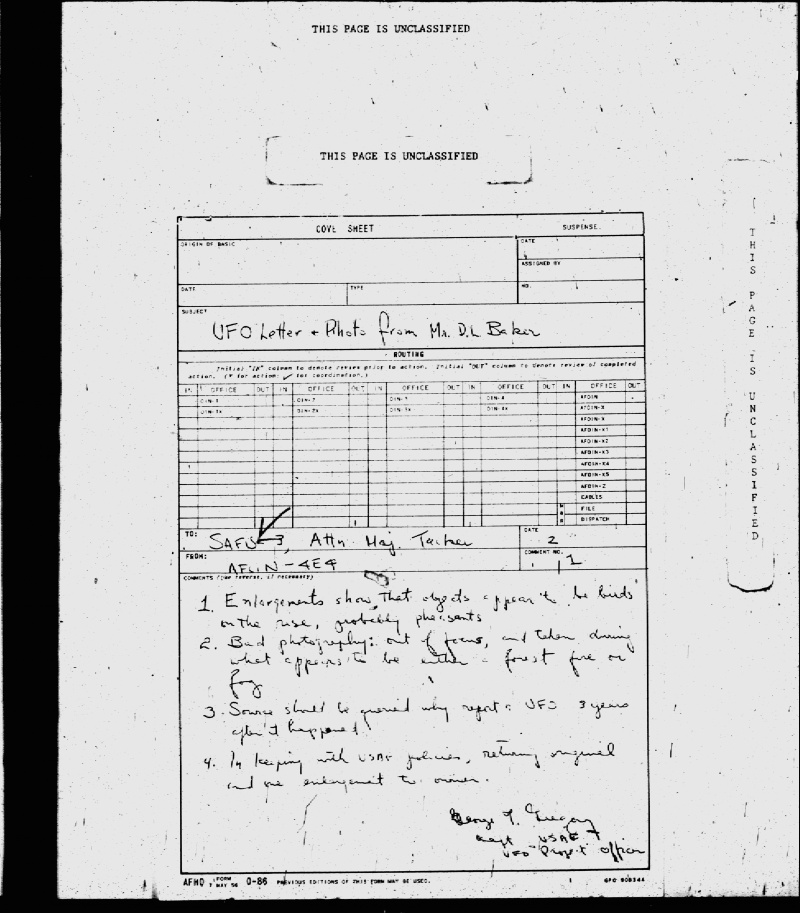 THIS PAGE IS UNCLASSIFIED
THIS PAGE IS UNCLASSIFIED
COVE SHEET
SUSPENSE
ORIGIN OF BASIC
DATE
ASSIGNED BY
DATE
TYPE
NO.
SUBJECT
UFO Letter + Photo from Mr. D.L. Baker
ROUTING
Initial "IN" column to denote review prior to action. Initial "OUT" column to denote review of completed
action. (X for action; ✓ for coordination.)
IN OFFICE OUT IN OFFICE OUT IN OFFICE OUT IN OFFICE OUT IN OFFICE OUT
AFOIN
AFOIN-X
AFOIN-X
AFOIN-X1
AFOIN-X2
AFOIN-X3
AFOIN-X4
AFOIN-X5
AFOIN-Z
CABLES
FILE
DISPATCH
TO: SAFIS-3, Attn Maj. Tacker
DATE
2
FROM: AFOIN-4E4
COMMENT NO.
1
COMMENTS (Use reverse, if necessary)
1. Enlargements show that objects appear to be birds
on the rise, probably pheasants
2. Bad photography: out of focus, and taken during
what appears to be either a forest fire or
fog
3. Source should be queried why report a UFO 3 years
after it happened!
4. In keeping with USAF policies, returning original
and one enlargement to owner.
George T. Gregory
Capt USAF
UFO Project Officer
AFHQ FORM 7 MAY 56 0-86 PREVIOUS EDITIONS OF THIS FORM MAY BE USED.
THIS PAGE IS UNCLASSIFIED